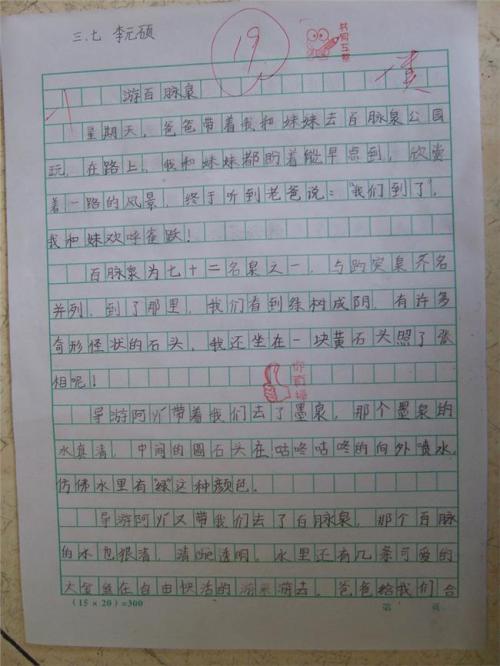 三.七 李元硕
19
游百脉泉
星期天，爸爸带着我和妹妹去百脉泉公园
玩，在路上，我和妹妹都盼着能早点到，欣赏
着一路的风景，终于听到老爸说："我们到了"，
我和妹欢呼雀跃！
百脉泉为七十二名泉之一，与趵突泉齐名
并列，到了那里，我们看到绿树成阴，有许多
奇形怪状的石头，我还坐在一块黄石头照了张
相呢！
导游阿姨带着我们去了墨泉，那个墨泉的
水真清，中间的圆石头在咕咚咕咚的向外喷水，
仿佛水里有"绿"这种颜色。
导游阿姨又带我们去了百脉泉，那个百脉
的水也很清，清澈透明，水里还有几条可爱的
大金鱼在自由快活的游来游去，爸爸给我们合
(15×20)=300
第 页